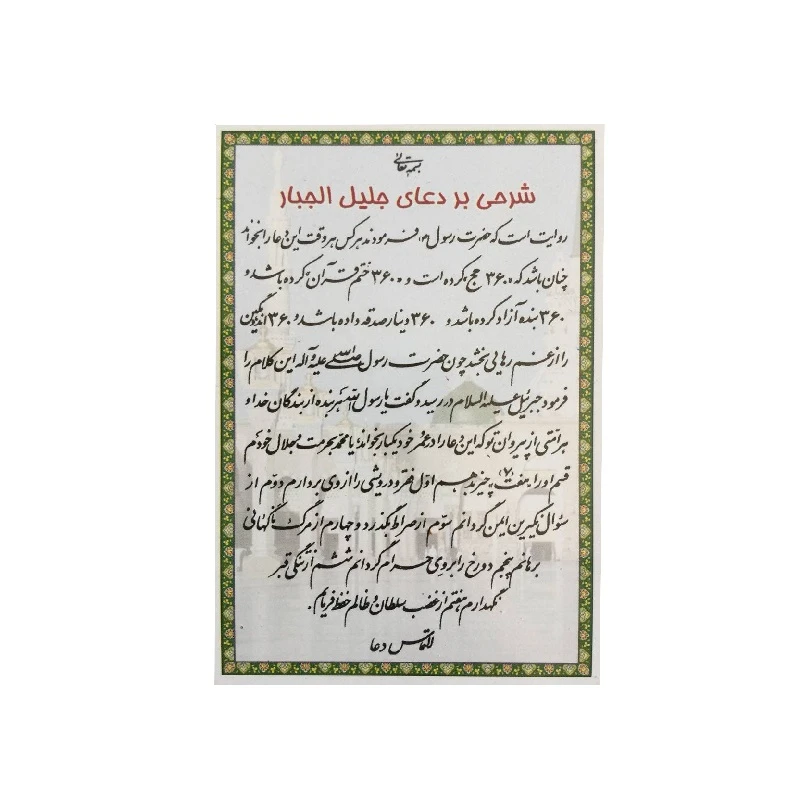 بسمه تعالی
شرحی بر دعای جلیل الجبار
روایت است که حضرت رسول (ص) فرمودند هر کس هر وقت این دعا را بخواند
چنان باشد که ۳۶۰ حج کرده است و ۳۶۰ ختم قرآن کرده باشد و
۳۶۰ بنده آزاد کرده باشد و ۳۶۰ دینار صدقه داده باشد و ۳۶۰ اندوهگین
را از غم رهایی بخشد چون حضرت رسول صلی الله علیه و آله این کلام را
فرمود جبرئیل علیه السلام در رسید و گفت یا رسول الله هر بنده از بندگان خدا و
هر امتی از پیروان تو که این دعا را در عمر خود یکبار بخواند؛ یا محمد بحرمت و جلال خودم
قسم او را هفت (۷) چیز بدهم اول فقر و درویشی را از وی بردارم دوم از
سئوال نکیرین ایمن گردانم سوم از صراط بگذرد و چهارم از مرگ ناگهانی
برهانم پنجم دوزخ را بر وی حرام گردانم ششم از تنگی قبر
نگهدارم هفتم از غضب سلطان و ظالم حفظ فرمایم.
التماس دعا